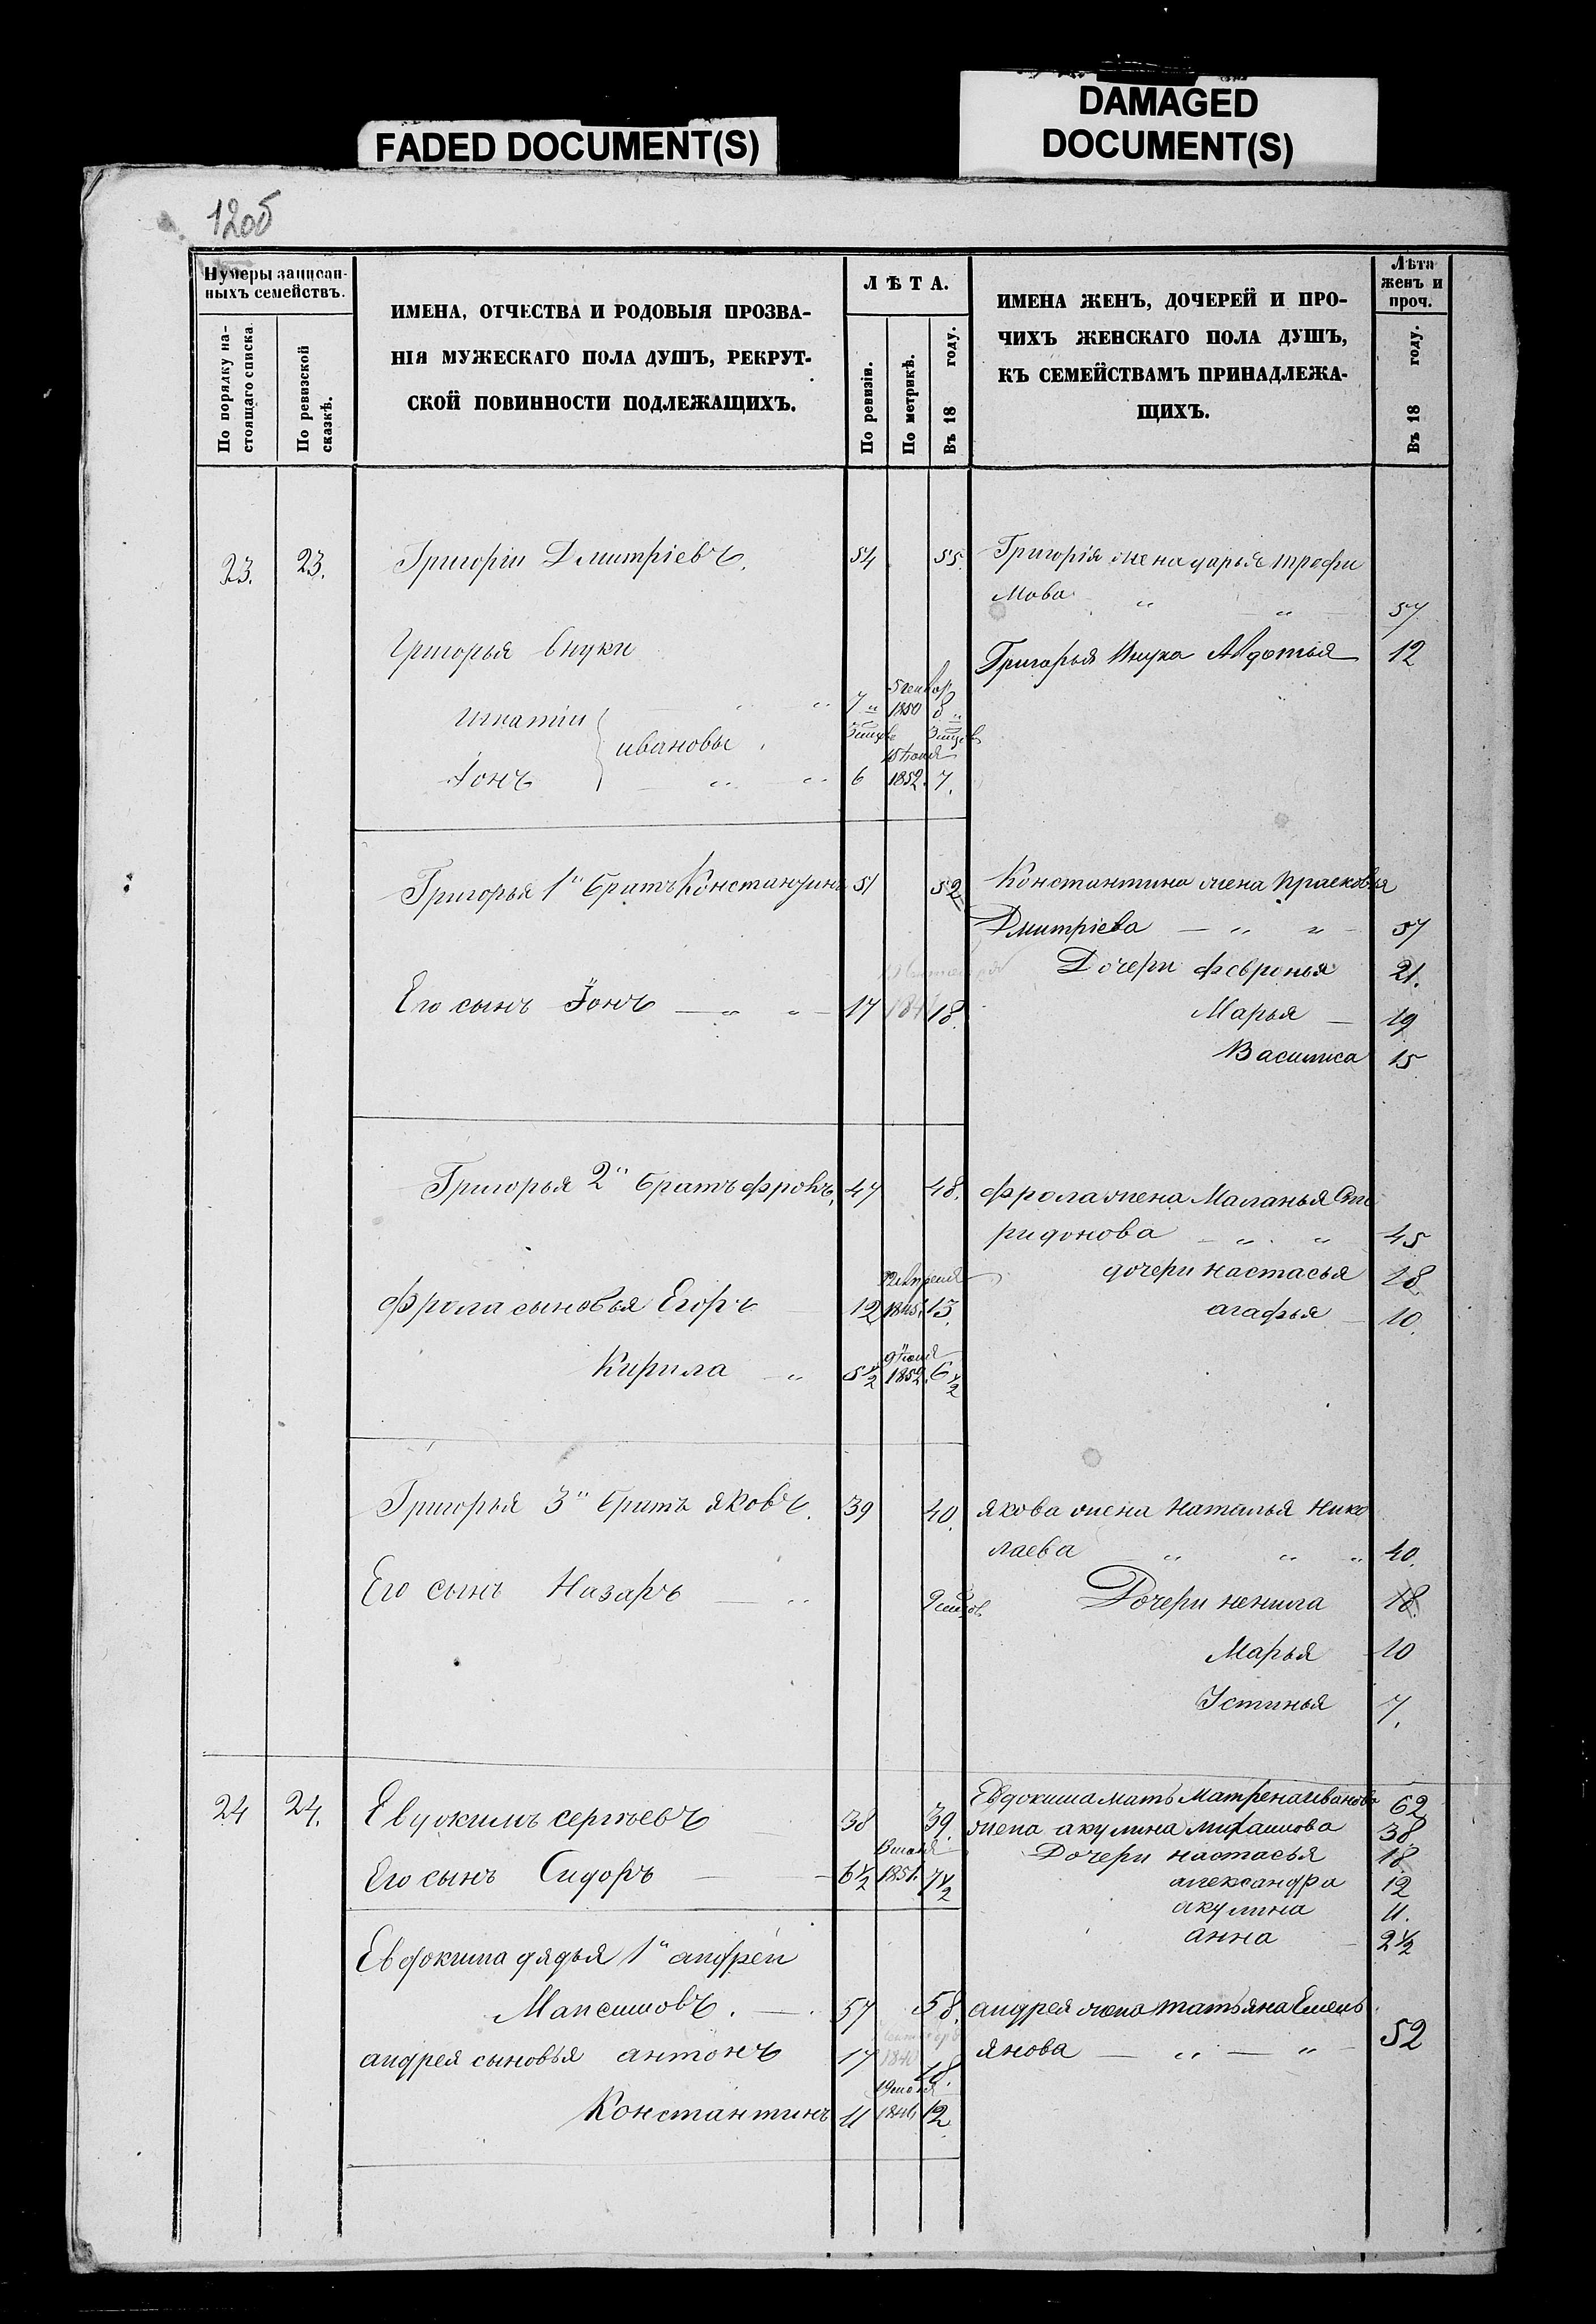 FADED DOCUMENT(S)
DAMAGED
DOCUMENT(S)
120б
Нумеры записан-
ныхъ семействъ.
По порядку на-
стоящаго списка.
По ревизской
сказкѣ.
ИМЕНА, ОТЧЕСТВА И РОДОВЫЯ ПРОЗВА-
НІЯ МУЖЕСКАГО ПОЛА ДУШЪ, РЕКРУТ-
СКОЙ ПОВИННОСТИ ПОДЛЕЖАЩИХЪ.
ЛѢТА.
По ревизіи.
По метрикѣ.
Въ 18 году.
ИМЕНА ЖЕНЪ, ДОЧЕРЕЙ И ПРО-
ЧИХЪ ЖЕНСКАГО ПОЛА ДУШЪ,
КЪ СЕМЕЙСТВАМЪ ПРИНАДЛЕЖА-
ЩИХЪ.
Лѣта
женъ и
проч.
Въ 18 году.
23. 23. Григорiи Дмитріевъ. 54 55. Григорія жена дарья трофи
мова " " 57
Григорья внуки Григорья внука Авдотья 12
5 генвар
игнатiи " 7 " 1850 8 "
ивановы
15 юлiя
Iонъ " " 6 1852. 7.
Григорья 1й братъ Константинъ 51 52 Константина жена прасковья
Дмитріева " " 57
Дочери февронья 21.
Его сынъ Iонъ " " 17 184 18. Марья 19
Василиса 15
Григорья 2й братъ фролъ, 47 48. фрола жена Маланья Спи
ридонова " " 45
22 Апреля дочери настасья 18
фрола сыновья Егоръ 12 1845. 13. агафья 10.
9 юлiя
Кирила " 5½ 1852. 6½
Григорья 3й братъ яковъ. 39 40. якова жена наталья нико
лаева " " " 40.
Его сынъ Назаръ " Дочери ненила 18
Марья 10
Устинья 7.
24 24. Евдокимъ сергѣевъ 38 39. Евдокима мать Матрена иванова 62
жена акулина михаилова 38
Дочери настасья 18
Его сынъ Сидоръ 6½ 1851. 7½ александра 12
акулина 11.
анна 2½
Евдокима дядья 1й андрей
Максимовъ. 57 58. андрея жена татьяна Емель
андрея сыновья антонъ 17 184 18. янова " " 52
Константинъ 11 1846 12.